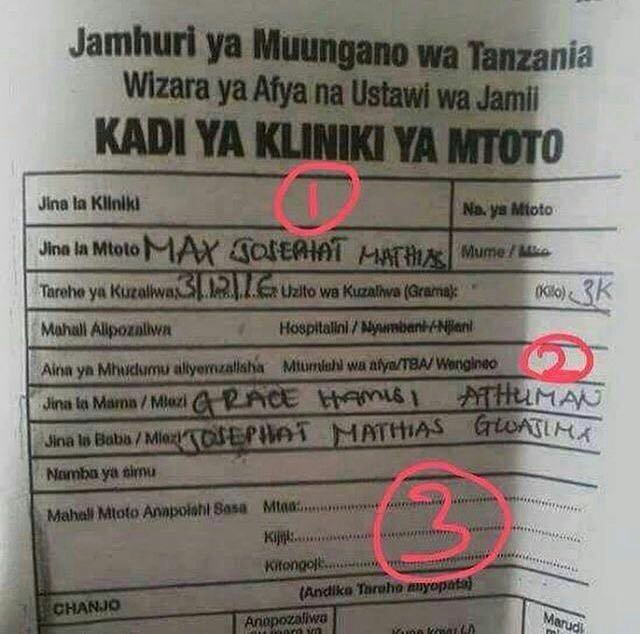 Jamhuri ya Muungano wa Tanzania
Wizara ya Afya na Ustawi wa Jamii
KADI YA KLINIKI YA MTOTO
Jina la Kliniki 1 Na. ya Mtoto
Jina la Mtoto MAX JOSEPHAT MATHIAS Mume / Mke
Tarehe ya Kuzaliwa 3/12/16 Uzito wa Kuzaliwa (Grama): (Kilo) 3K
Mahali Alipozaliwa Hospitalini / Nyumbani / Njiani
Aina ya Mhudumu aliyemzalisha Mtumishi wa afya/TBA/ Wengineo 2
Jina la Mama / Mlezi GRACE HAMISI ATHUMAN
Jina la Baba / Mlezi JOSEPHAT MATHIAS GWAJIMA
Namba ya simu
Mahali Mtoto Anapoishi Sasa Mtaa:
Kijiji: 3
Kitongoji:
(Andika Tarehe aliyopata)
CHANJO
Anapozaliwa Kuna kovu (√) Marudi